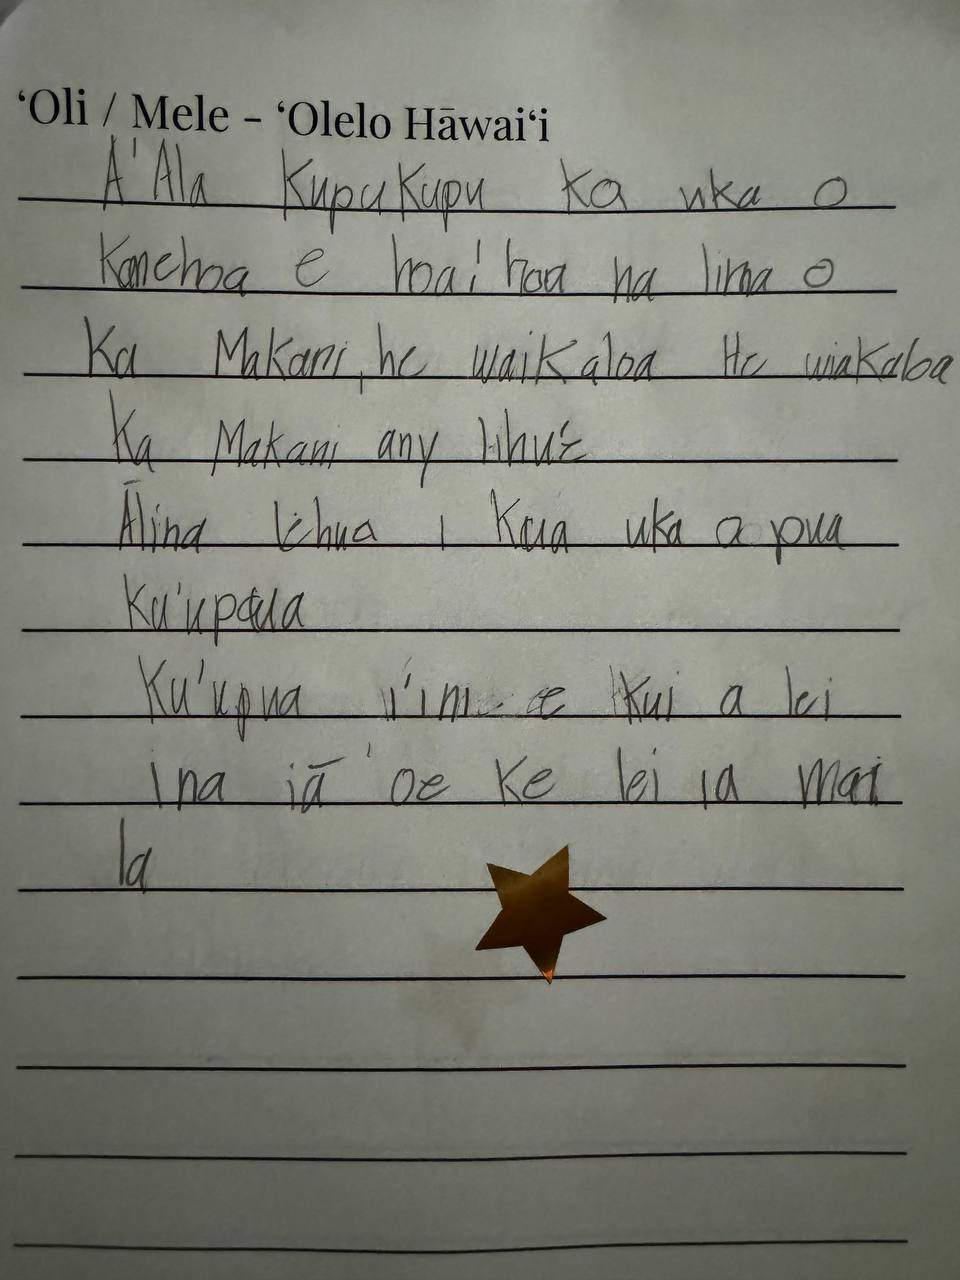 ʻOli / Mele - ʻOlelo Hāwaiʻi
A'Ala KupuKupu Ka uka o
Kanehoa e hoa'hoa na lima o
Ka Makani, he waiKaloa He wiaKaloa
Ka Makani any lihu'e
Ālina lehua i Kaua uka a pua
Ku'upaua
Ku'upua i'ini e Kui a lei
ina iā 'oe Ke lei ia mai
la